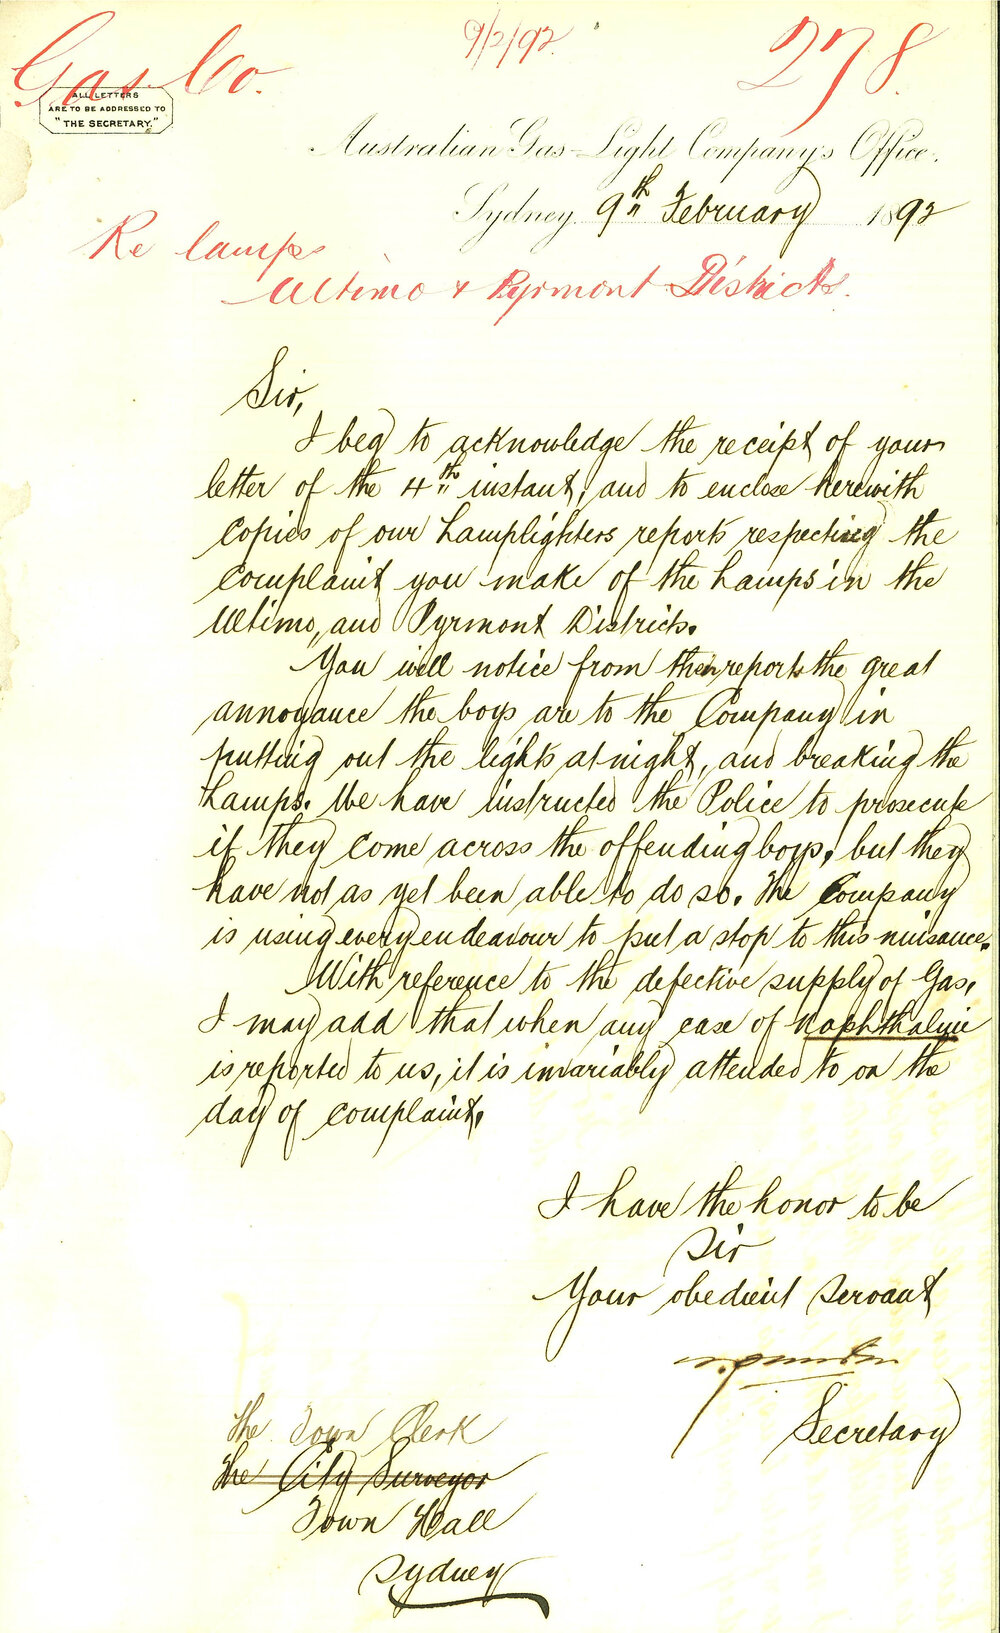 Gas Co.
9/2/92.
278.
ALL LETTERS
ARE TO BE ADDRESSED TO
"THE SECRETARY."
Australian Gas-Light Company's Office.
Sydney 9th February 1892
Re lamps
Ultimo & Pyrmont Districts.
Sir,
I beg to acknowledge the receipt of your
letter of the 4th instant, and to enclose herewith
Copies of our Lamplighters reports respecting the
Complaint you make of the Lamps in the
Ultimo, and Pyrmont Districts.
You will notice from their reports the great
annoyance the boys are to the Company in
putting out the lights at night, and breaking the
Lamps. We have instructed the Police to prosecute
if they come across the offending boys, but they
have not as yet been able to do so. The Company
is using every endeavour to put a stop to this nuisance.
With reference to the defective supply of Gas,
I may add that when any case of Naphthaline
is reported to us, it is invariably attended to on the
day of complaint.
I have the honor to be
Sir
Your obedient Servant
Secretary
The Town Clerk
The City Surveyor
Town Hall
Sydney